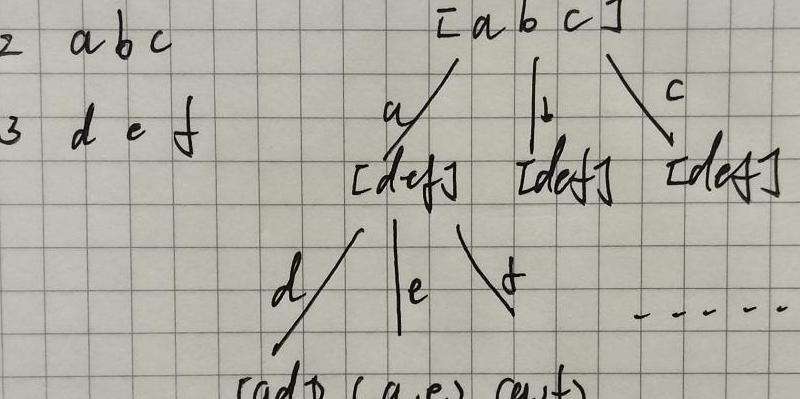 [a b c]
2 a b c
a b c
3 d e f
[def] [def] [def]
d e f
- - - - -
[ad] (a,e) (a,f)